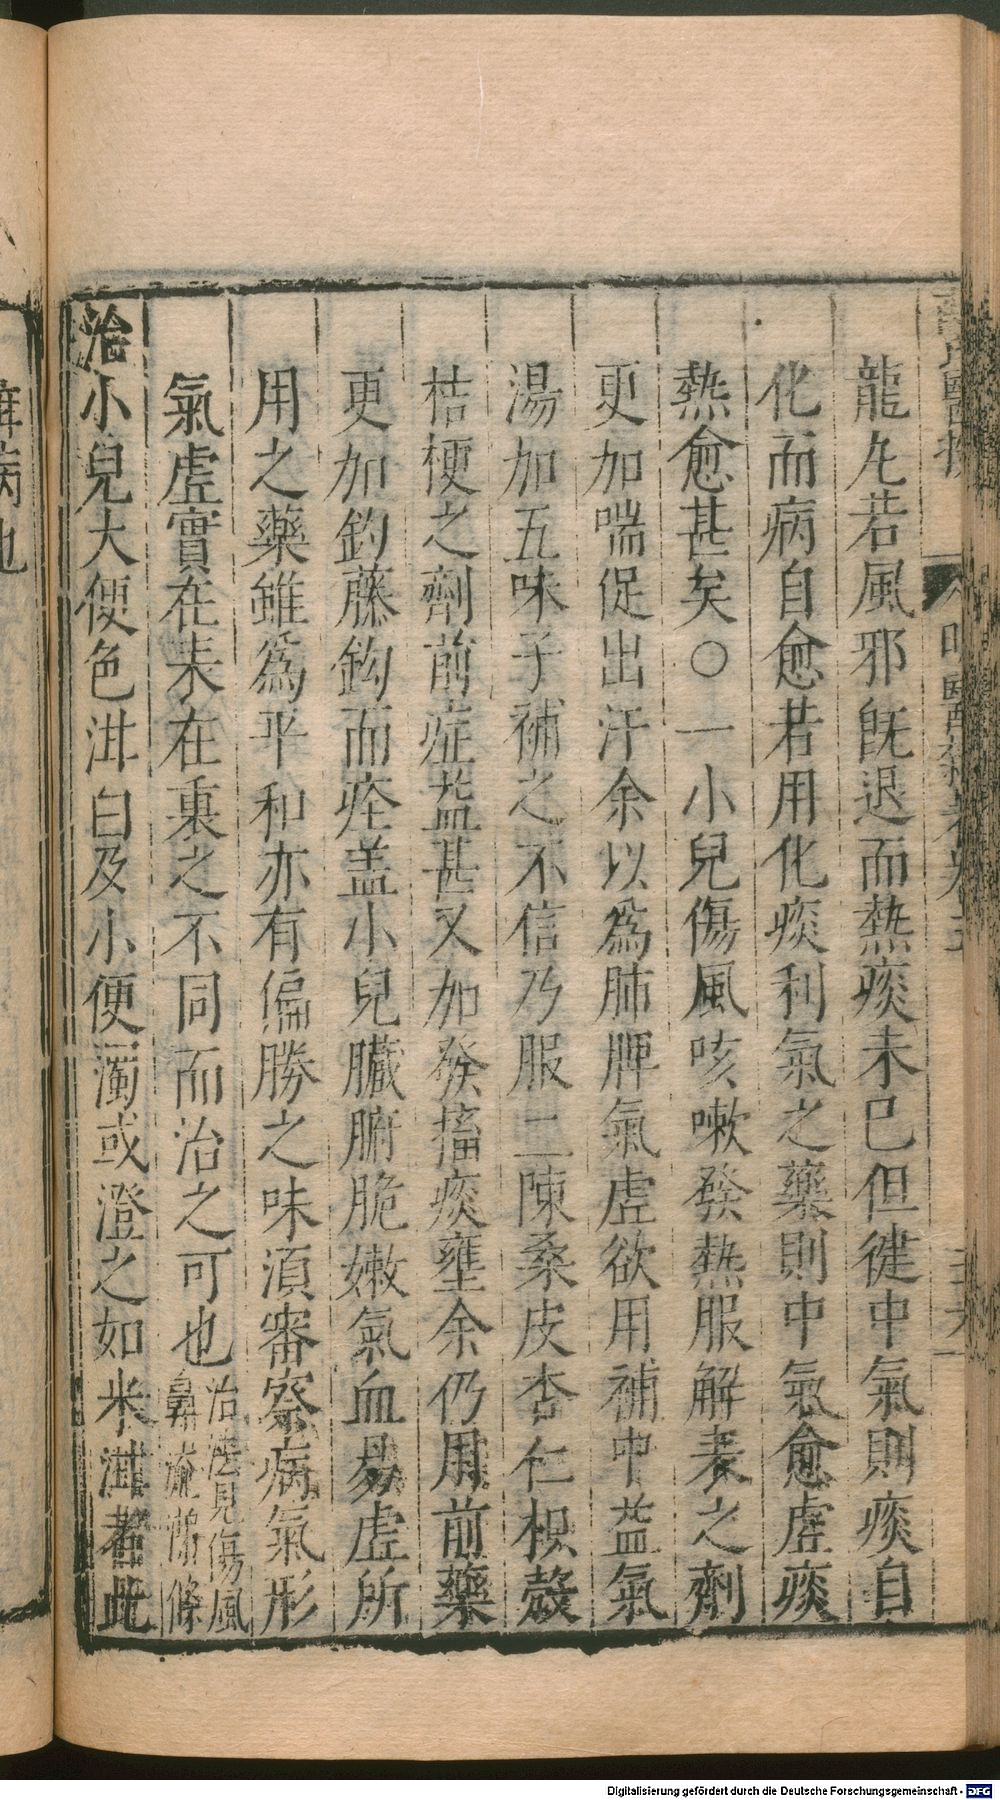 龍丸若風邪既退而熱痰未已但徤中氣則痰自
化而病自愈若用化痰利氣之藥則中氣愈虚痰
熱愈甚矣○一小兒傷風咳嗽發熱服解表之劑
更加喘促出汗余以為肺脾氣虚欲用補中益氣
湯加五味子補之不信乃服二陳桑皮杏仁枳殼
桔梗之劑前症益甚又加發搐痰壅余仍用前藥
更加釣藤鈎而痊盖小兒臟腑脆嫩氣血易虚所
用之藥雖為平和亦有偏勝之味須審察病氣形
氣虚實在表在裏之不同而治之可也治法見傷風
鼻流清條
治小兒大便色泔白及小便濁或澄之如米泔者此
病也
Digitalisierung gefördert durch die Deutsche Forschungsgemeinschaft - DFG